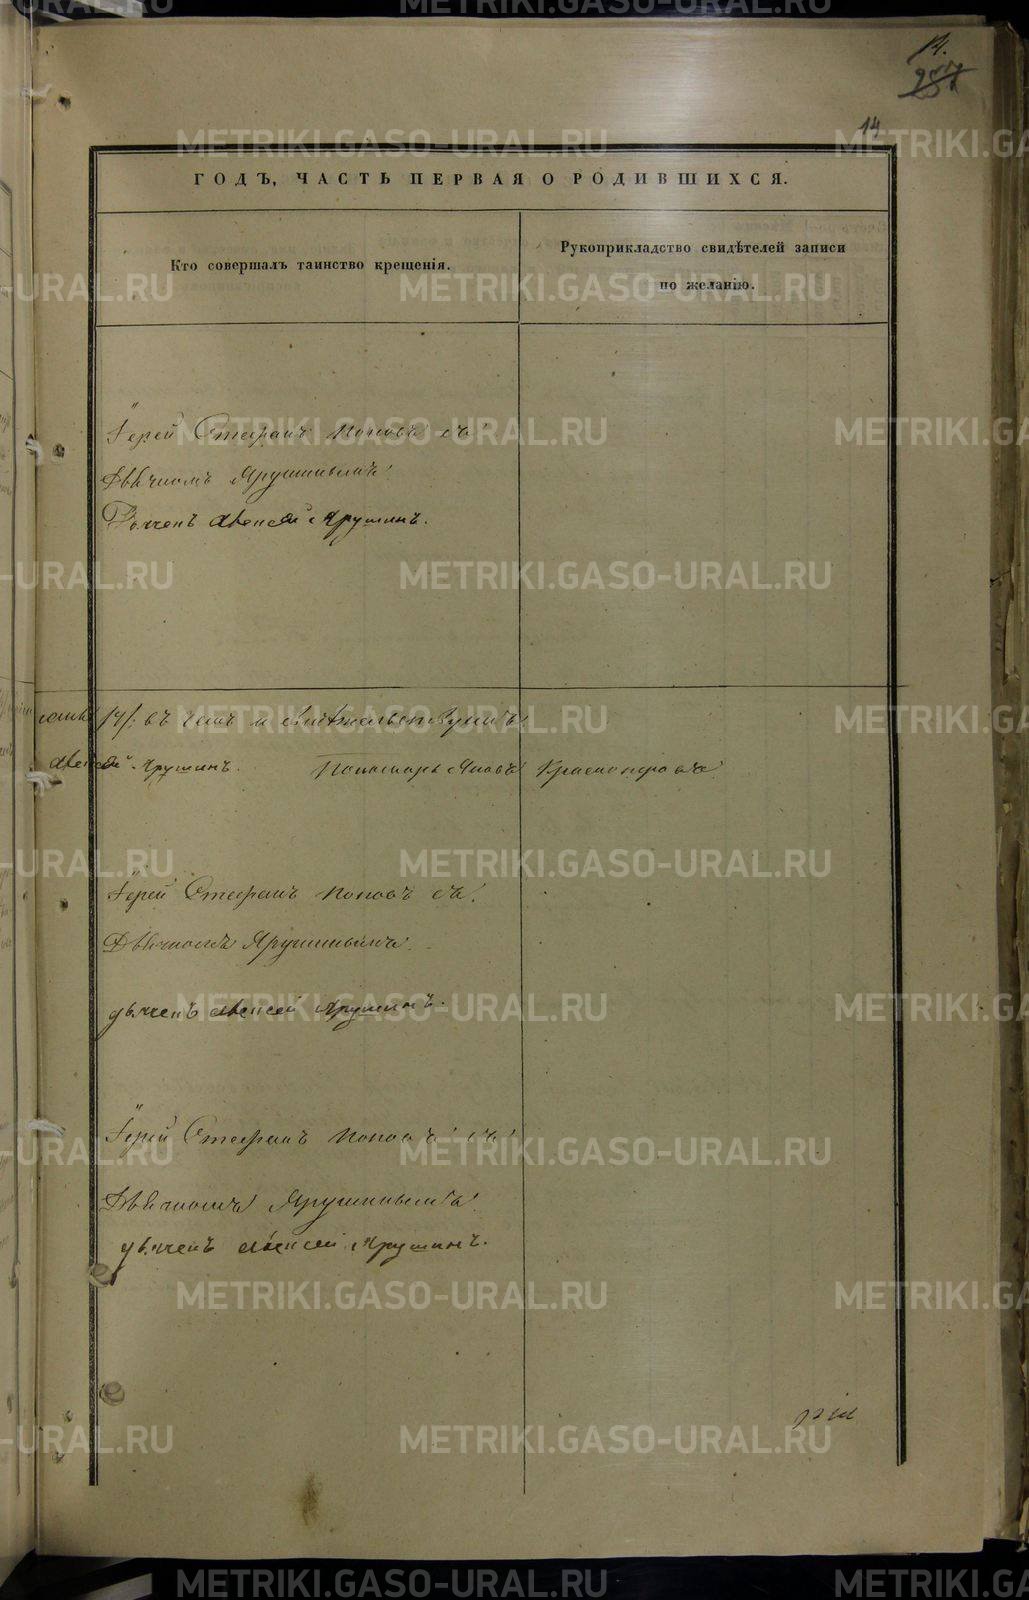 14.
257
14
ГОДЪ, ЧАСТЬ ПЕРВАЯ О РОДИВШИХСЯ.
Кто совершалъ таинство крещенія.
Рукоприкладство свидѣтелей записи
по желанію.
Іерей Стефанъ Поповъ съ
Дьячкомъ Ярушинымъ
Дьячекъ Алексей Ярушинъ.
/9/: въ чемъ и свидѣтельствуютъ
Алексей Ярушинъ. Пономарь Яковъ Красноперовъ
Іерей Стефанъ Поповъ съ
Дьячкомъ Ярушинымъ.
дьячекъ Алексей Ярушинъ.
Іерей Стефанъ Поповъ съ
Дьячкомъ Ярушинымъ
дьячекъ Алексей Ярушинъ.
METRIKI.GASO-URAL.RU